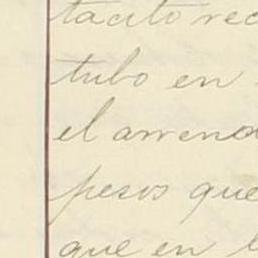 tacito rec
tubo en
el arrend
pesos que
que en l